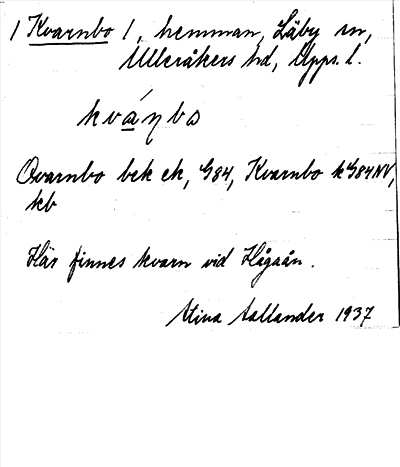 1 Kvarnbo 1, hemman, Läby sn,
Ulleråkers hd, Upps. l.
kváŋbo
Qvarnbo bek ek, G84, Kvarnbo k G84NV,
kb
Här finnes kvarn vid Hågaån.
Stina Aallander 1937